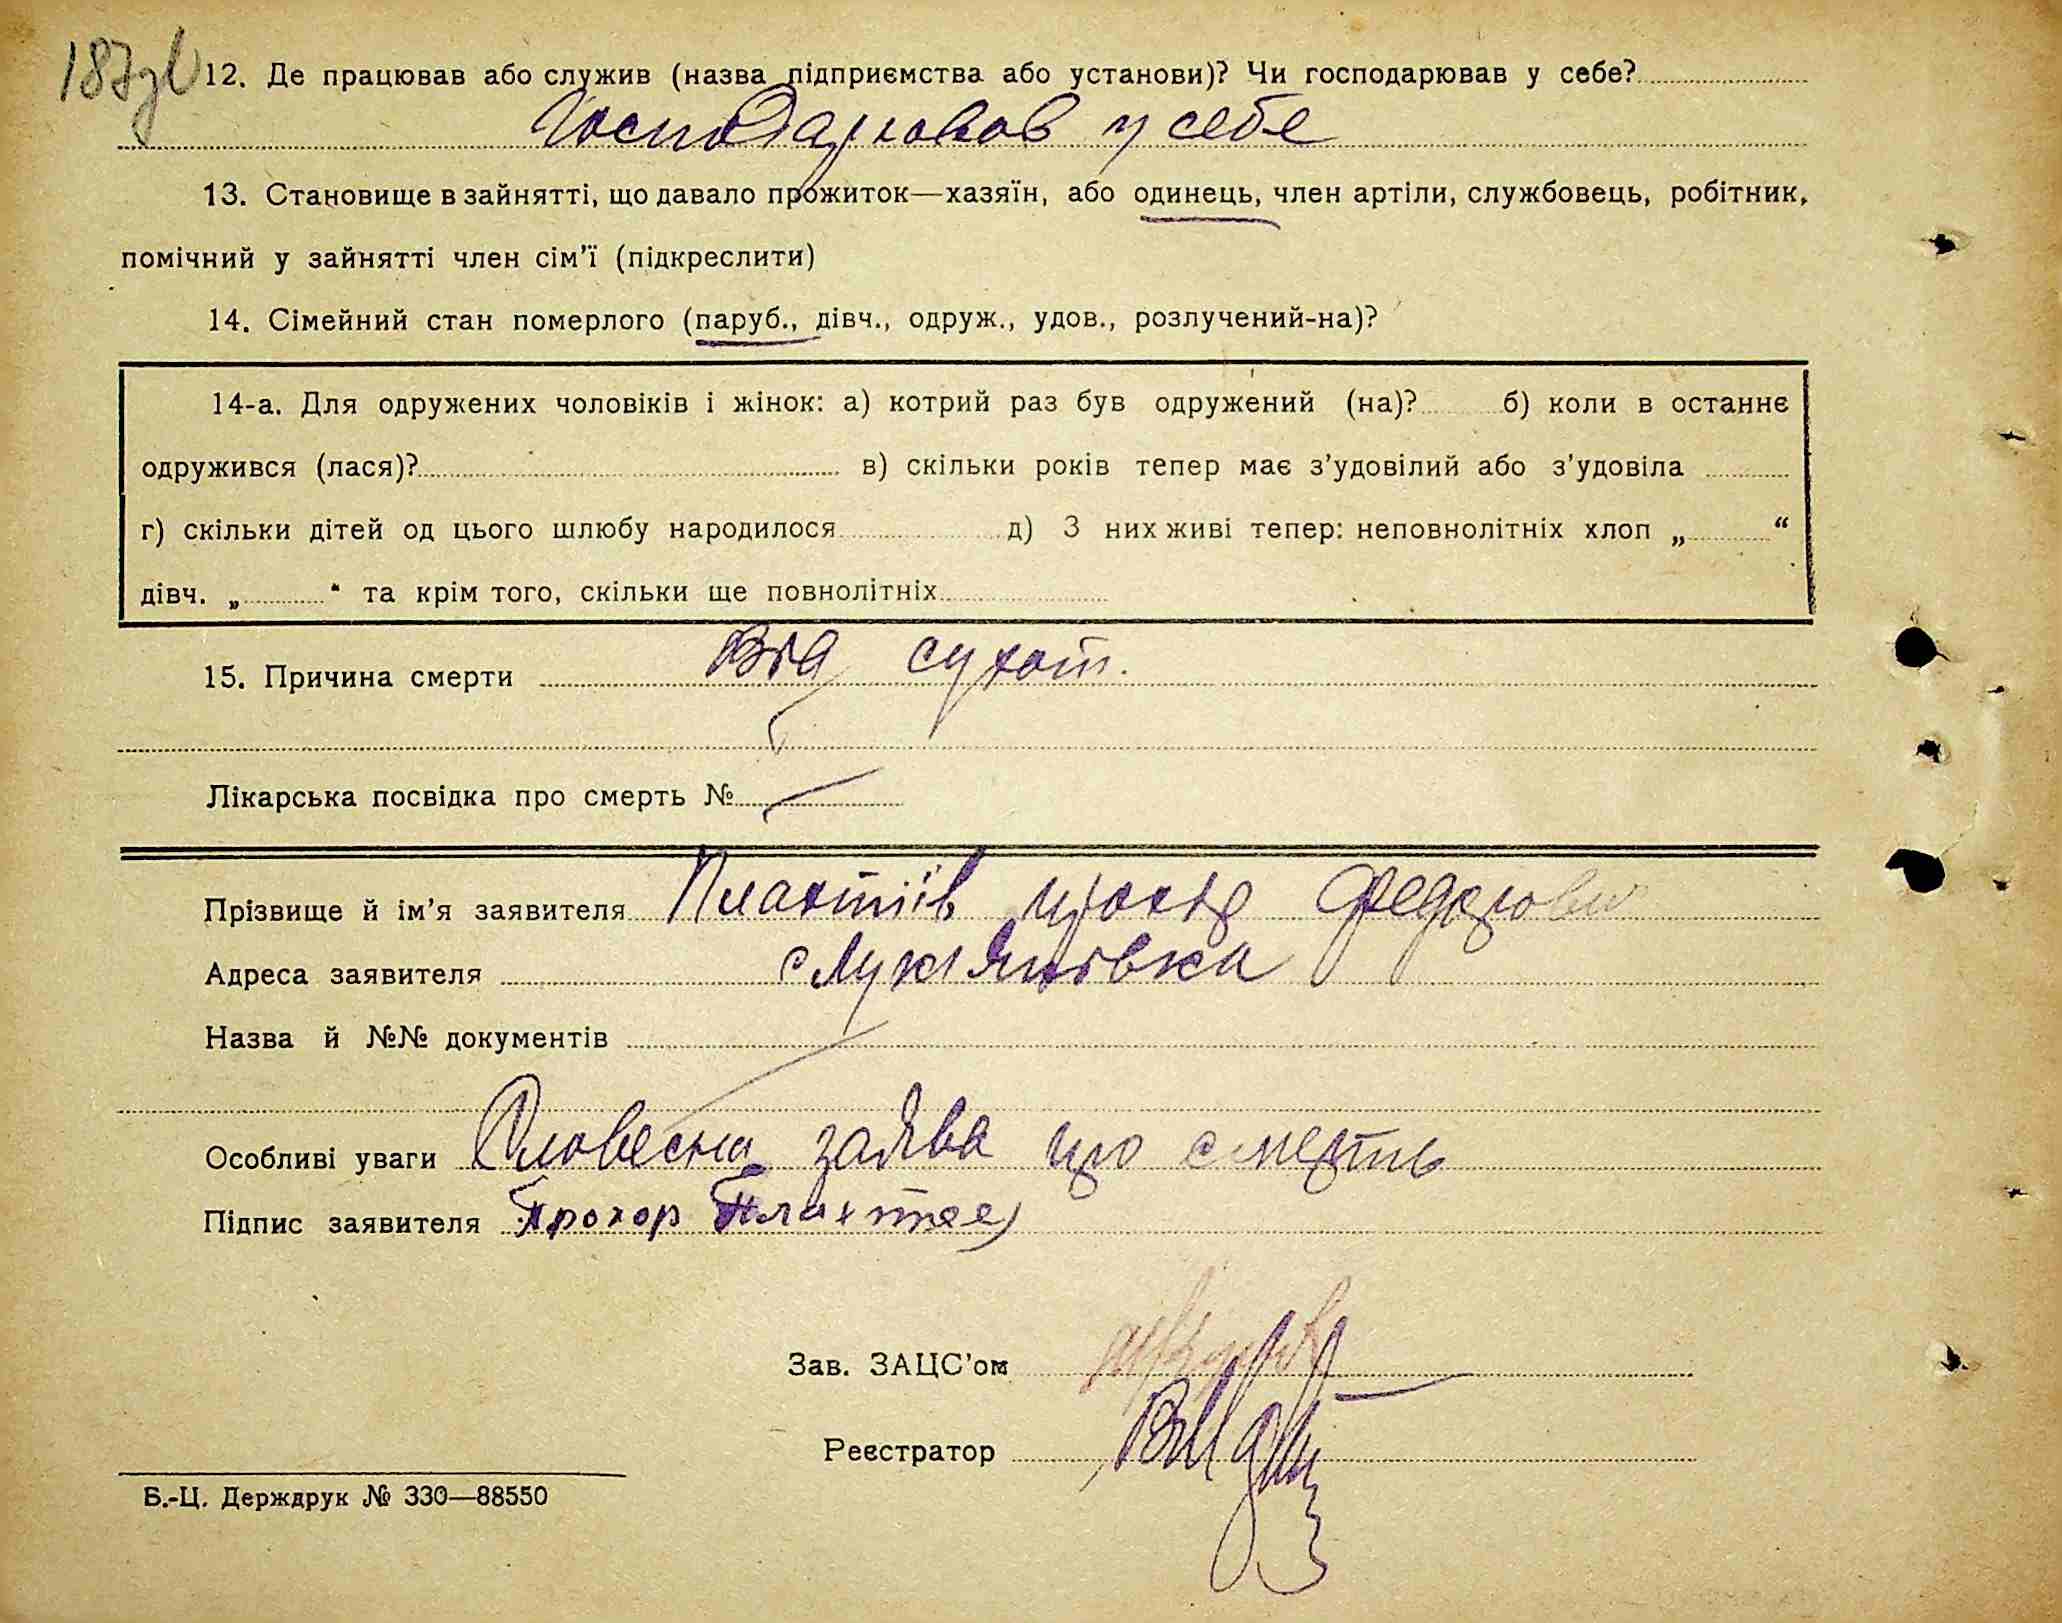 187зв
12. Де працював або служив (назва підприємства або установи)? Чи господарював у себе?
Господарював у себе
13. Становище в зайнятті, що давало прожиток—хазяїн, або одинець, член артіли, службовець, робітник,
помічний у зайнятті член сім'ї (підкреслити)
14. Сімейний стан померлого (паруб., дівч., одруж., удов., розлучений-на)?
14-а. Для одружених чоловіків і жінок: а) котрий раз був одружений (на)? б) коли в останнє
одружився (лася)? в) скільки років тепер має з'удовілий або з'удовіла
г) скільки дітей од цього шлюбу народилося д) З них живі тепер: неповнолітніх хлоп „ “
дівч. „ “ та крім того, скільки ще повнолітніх
15. Причина смерти Від сухот.
Лікарська посвідка про смерть №
Прізвище й ім'я заявителя Плахтіїв Федорович
Адреса заявителя с Лукіянівка
Назва й №№ документів
Особливі уваги Словесна заява про смерть
Підпис заявителя Прохор Плахтеев
Зав. ЗАЦС'ом
Реєстратор
Б.-Ц. Держдрук № 330—88550